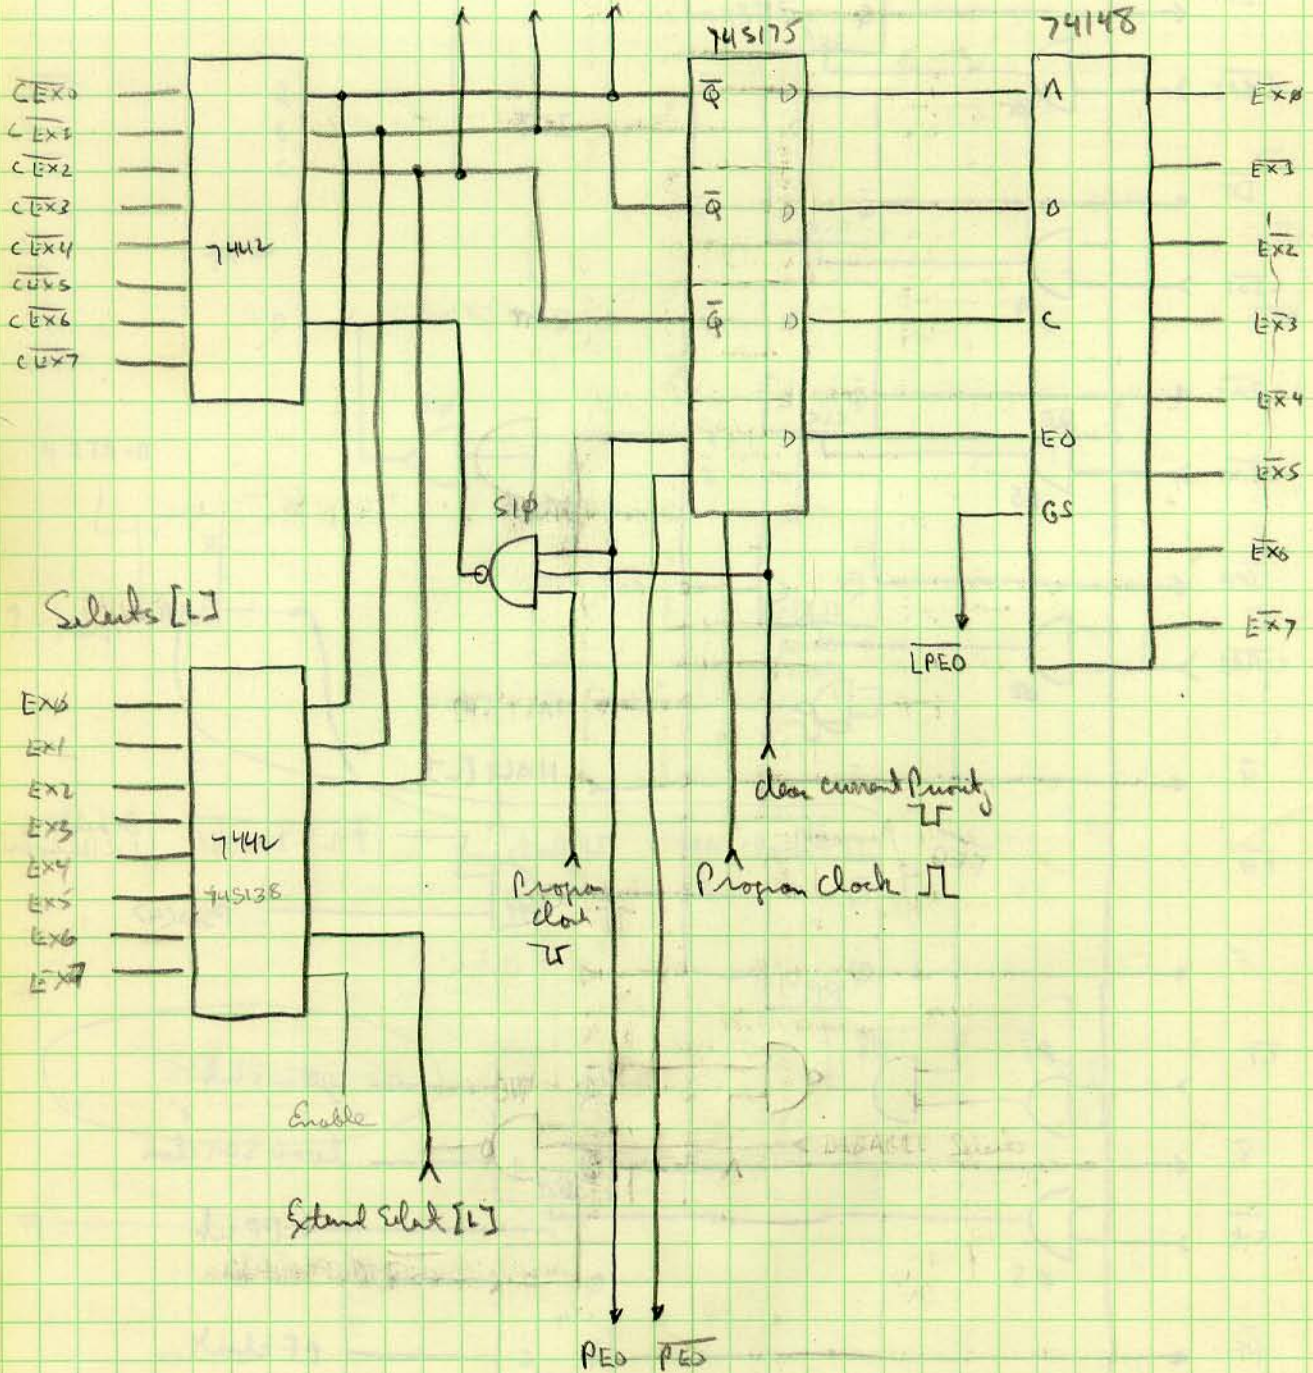 74S175
74148
CEX0
CEX1
CEX2
CEX3
CEX4
CEX5
CEX6
CEX7
7442
Q̅ D
Q̅ D
Q̅ D
D
A
C
EO
GS
E̅X̅0̅
E̅X̅1̅
E̅X̅2̅
E̅X̅3̅
E̅X̅4̅
E̅X̅5̅
E̅X̅6̅
E̅X̅7̅
S10
L̅P̅E̅O̅
Selects [L]
EX0
EX1
EX2
EX3
EX4
EX5
EX6
EX7
7442
74S138
clear current Priority
Program
clock
Program Clock
Enable
External Select [L]
PEO P̅E̅O̅